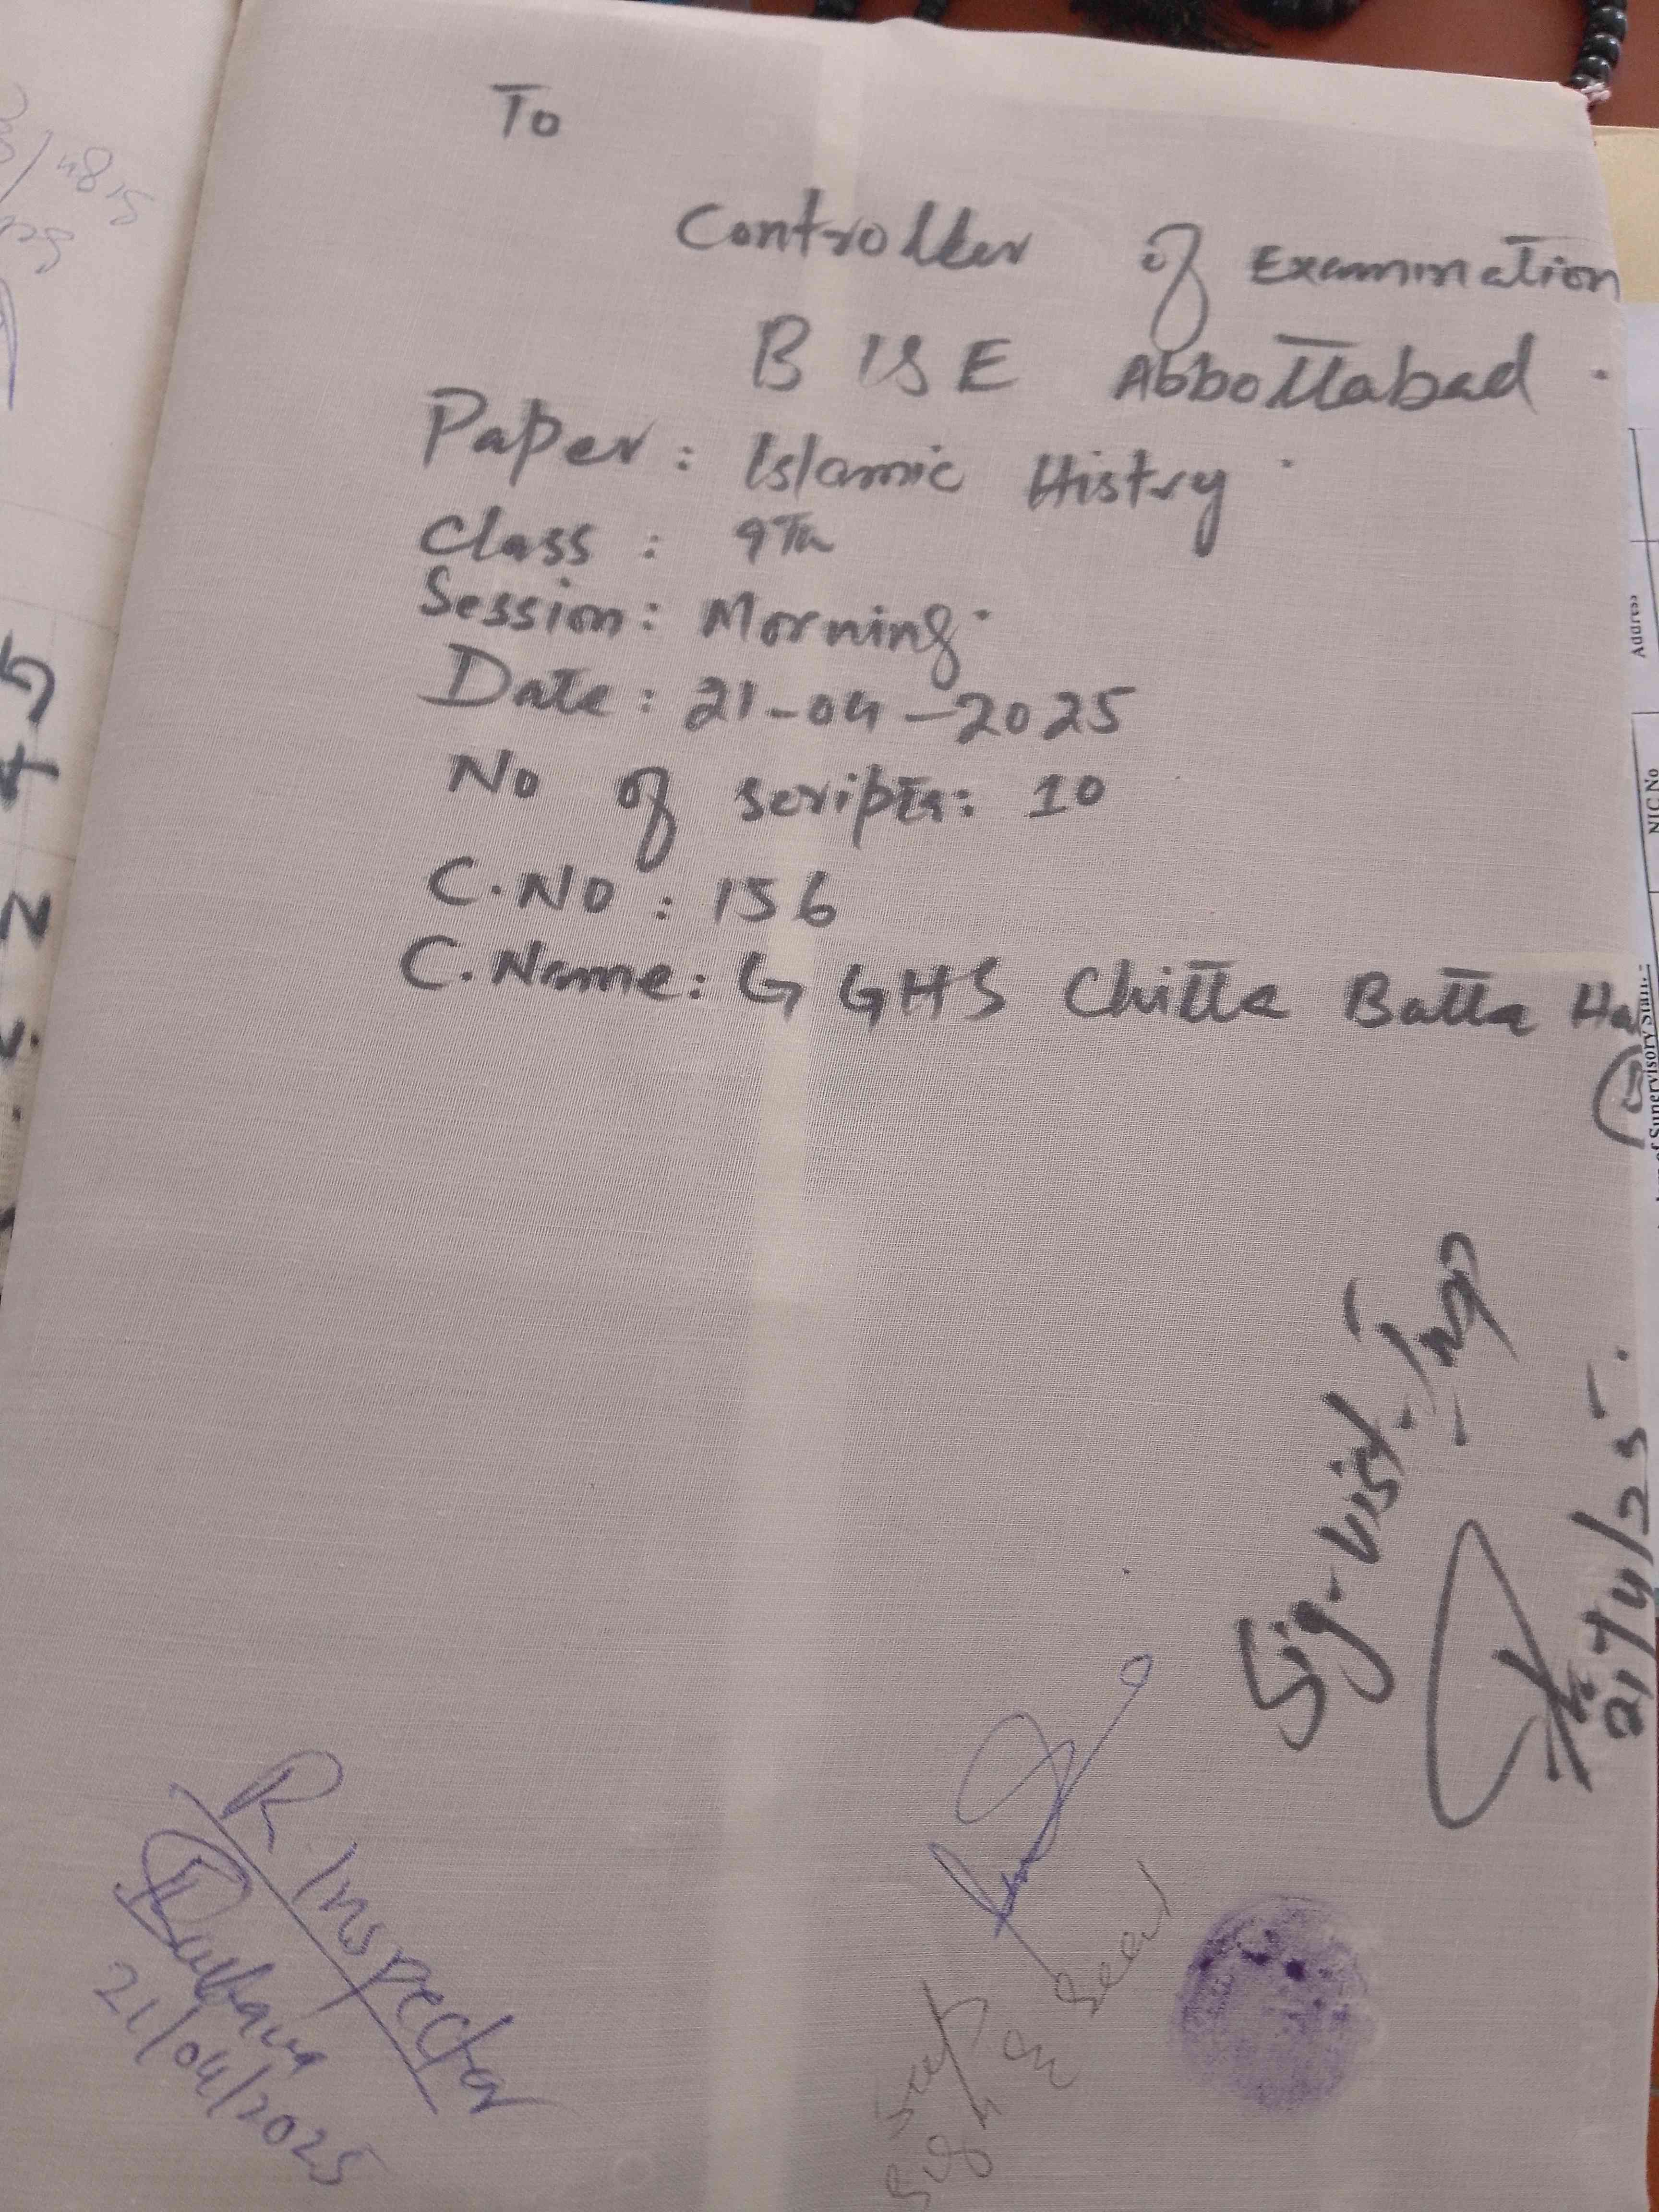 To
Controller of Examination
B I S E Abbottabad.
Paper: Islamic Histry
Class: 9Th
Session: Morning
Date: 21-04-2025
No of scripts: 10
C.NO: 156
C.Name: G GHS Chitta Batta Ha
Sig. Visit. Insp
21/4/25
R. Inspector
21/04/2025
Supt
Sign & Seal
Address
NIC No
of Supervisory Staff